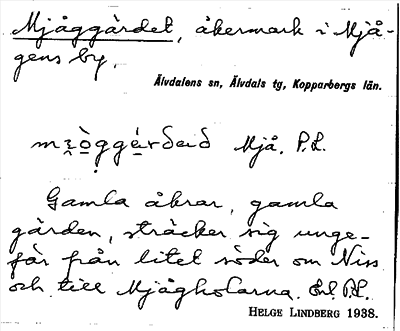 Mjåggärdet, åkermark i Mjå-
gens by.
Älvdalens sn, Älvdals tg, Kopparbergs län.
Mjå. P.L.
Gamla åkrar, gamla
gården, sträcker sig unge-
fär från litet söder om Niss
och till Mjågholarna. Enl. P.L.
HELGE LINDBERG 1938.